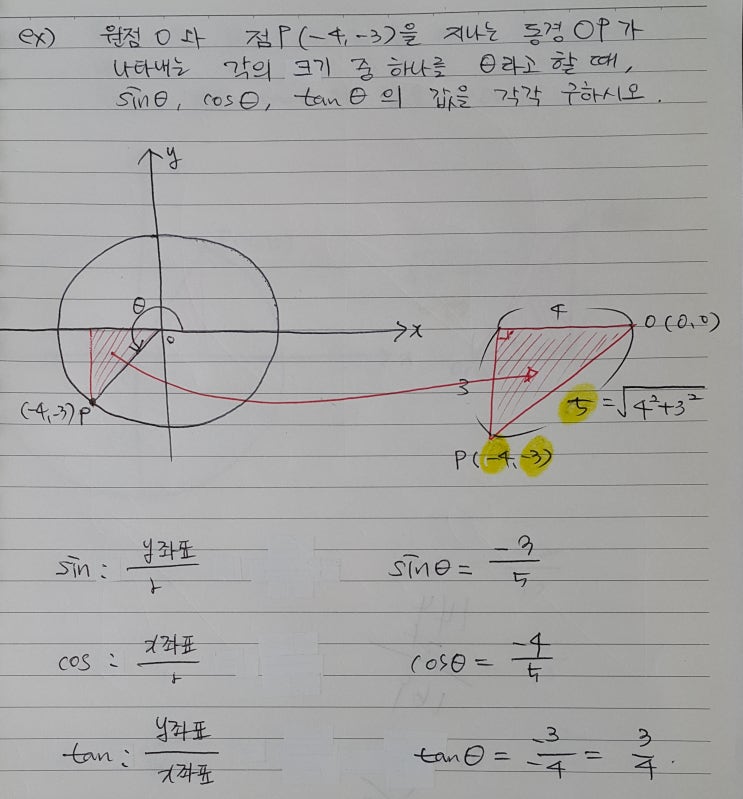 ex) 원점 O 와 점 P(-4, -3)을 지나는 동경 OP가
나타내는 각의 크기 중 하나를 θ라고 할 때,
sinθ, cosθ, tanθ의 값을 각각 구하시오.
y
θ
O
x
(-4,-3) P
4
O (0,0)
3
5 = √4²+3²
P(-4, -3)
sin : y좌표/r
sinθ = -3/5
cos : x좌표/r
cosθ = -4/5
tan : y좌표/x좌표
tanθ = -3/-4 = 3/4.